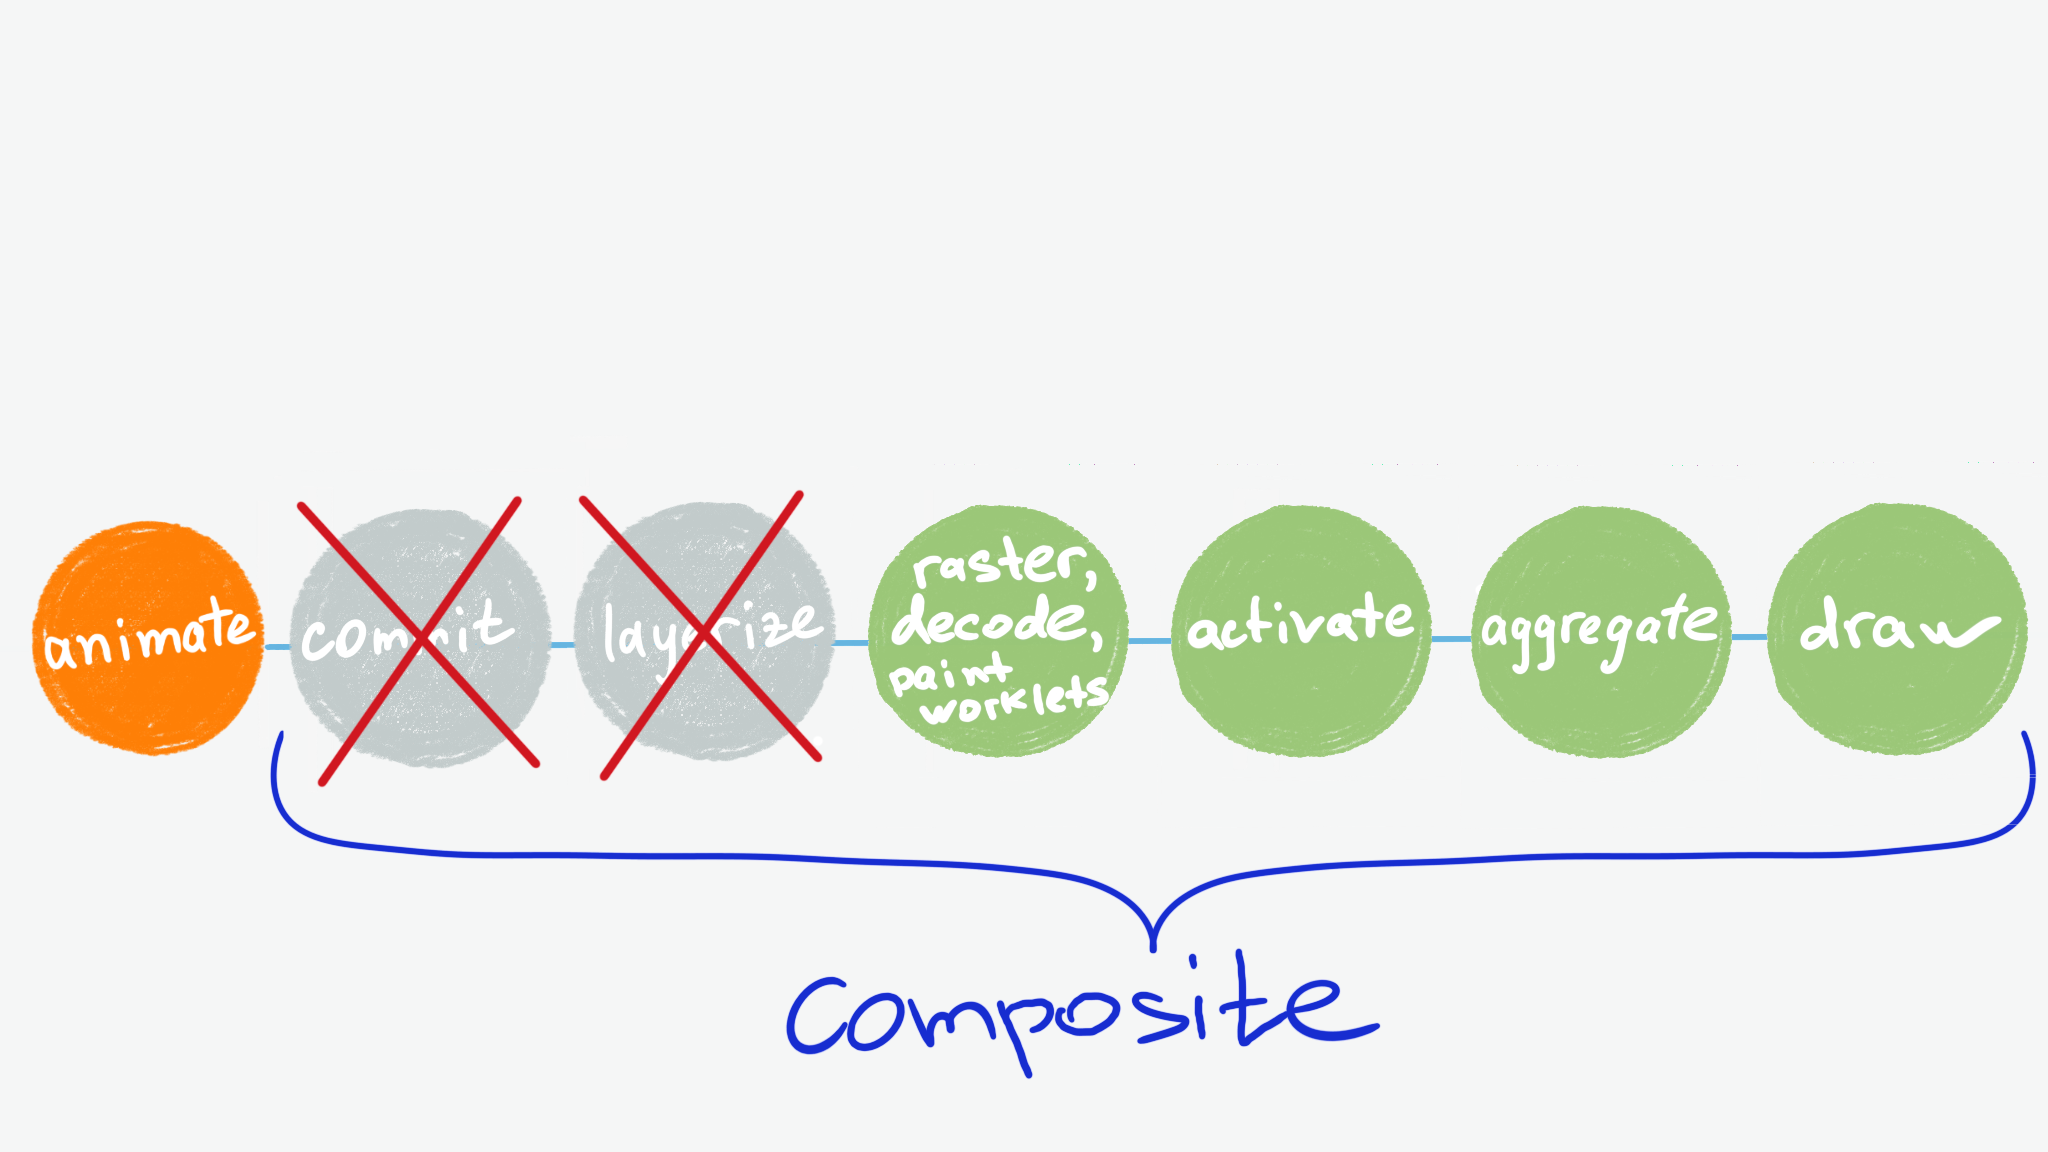 animate
commit
layerize
raster,
decode,
paint
worklets
activate
aggregate
draw
composite